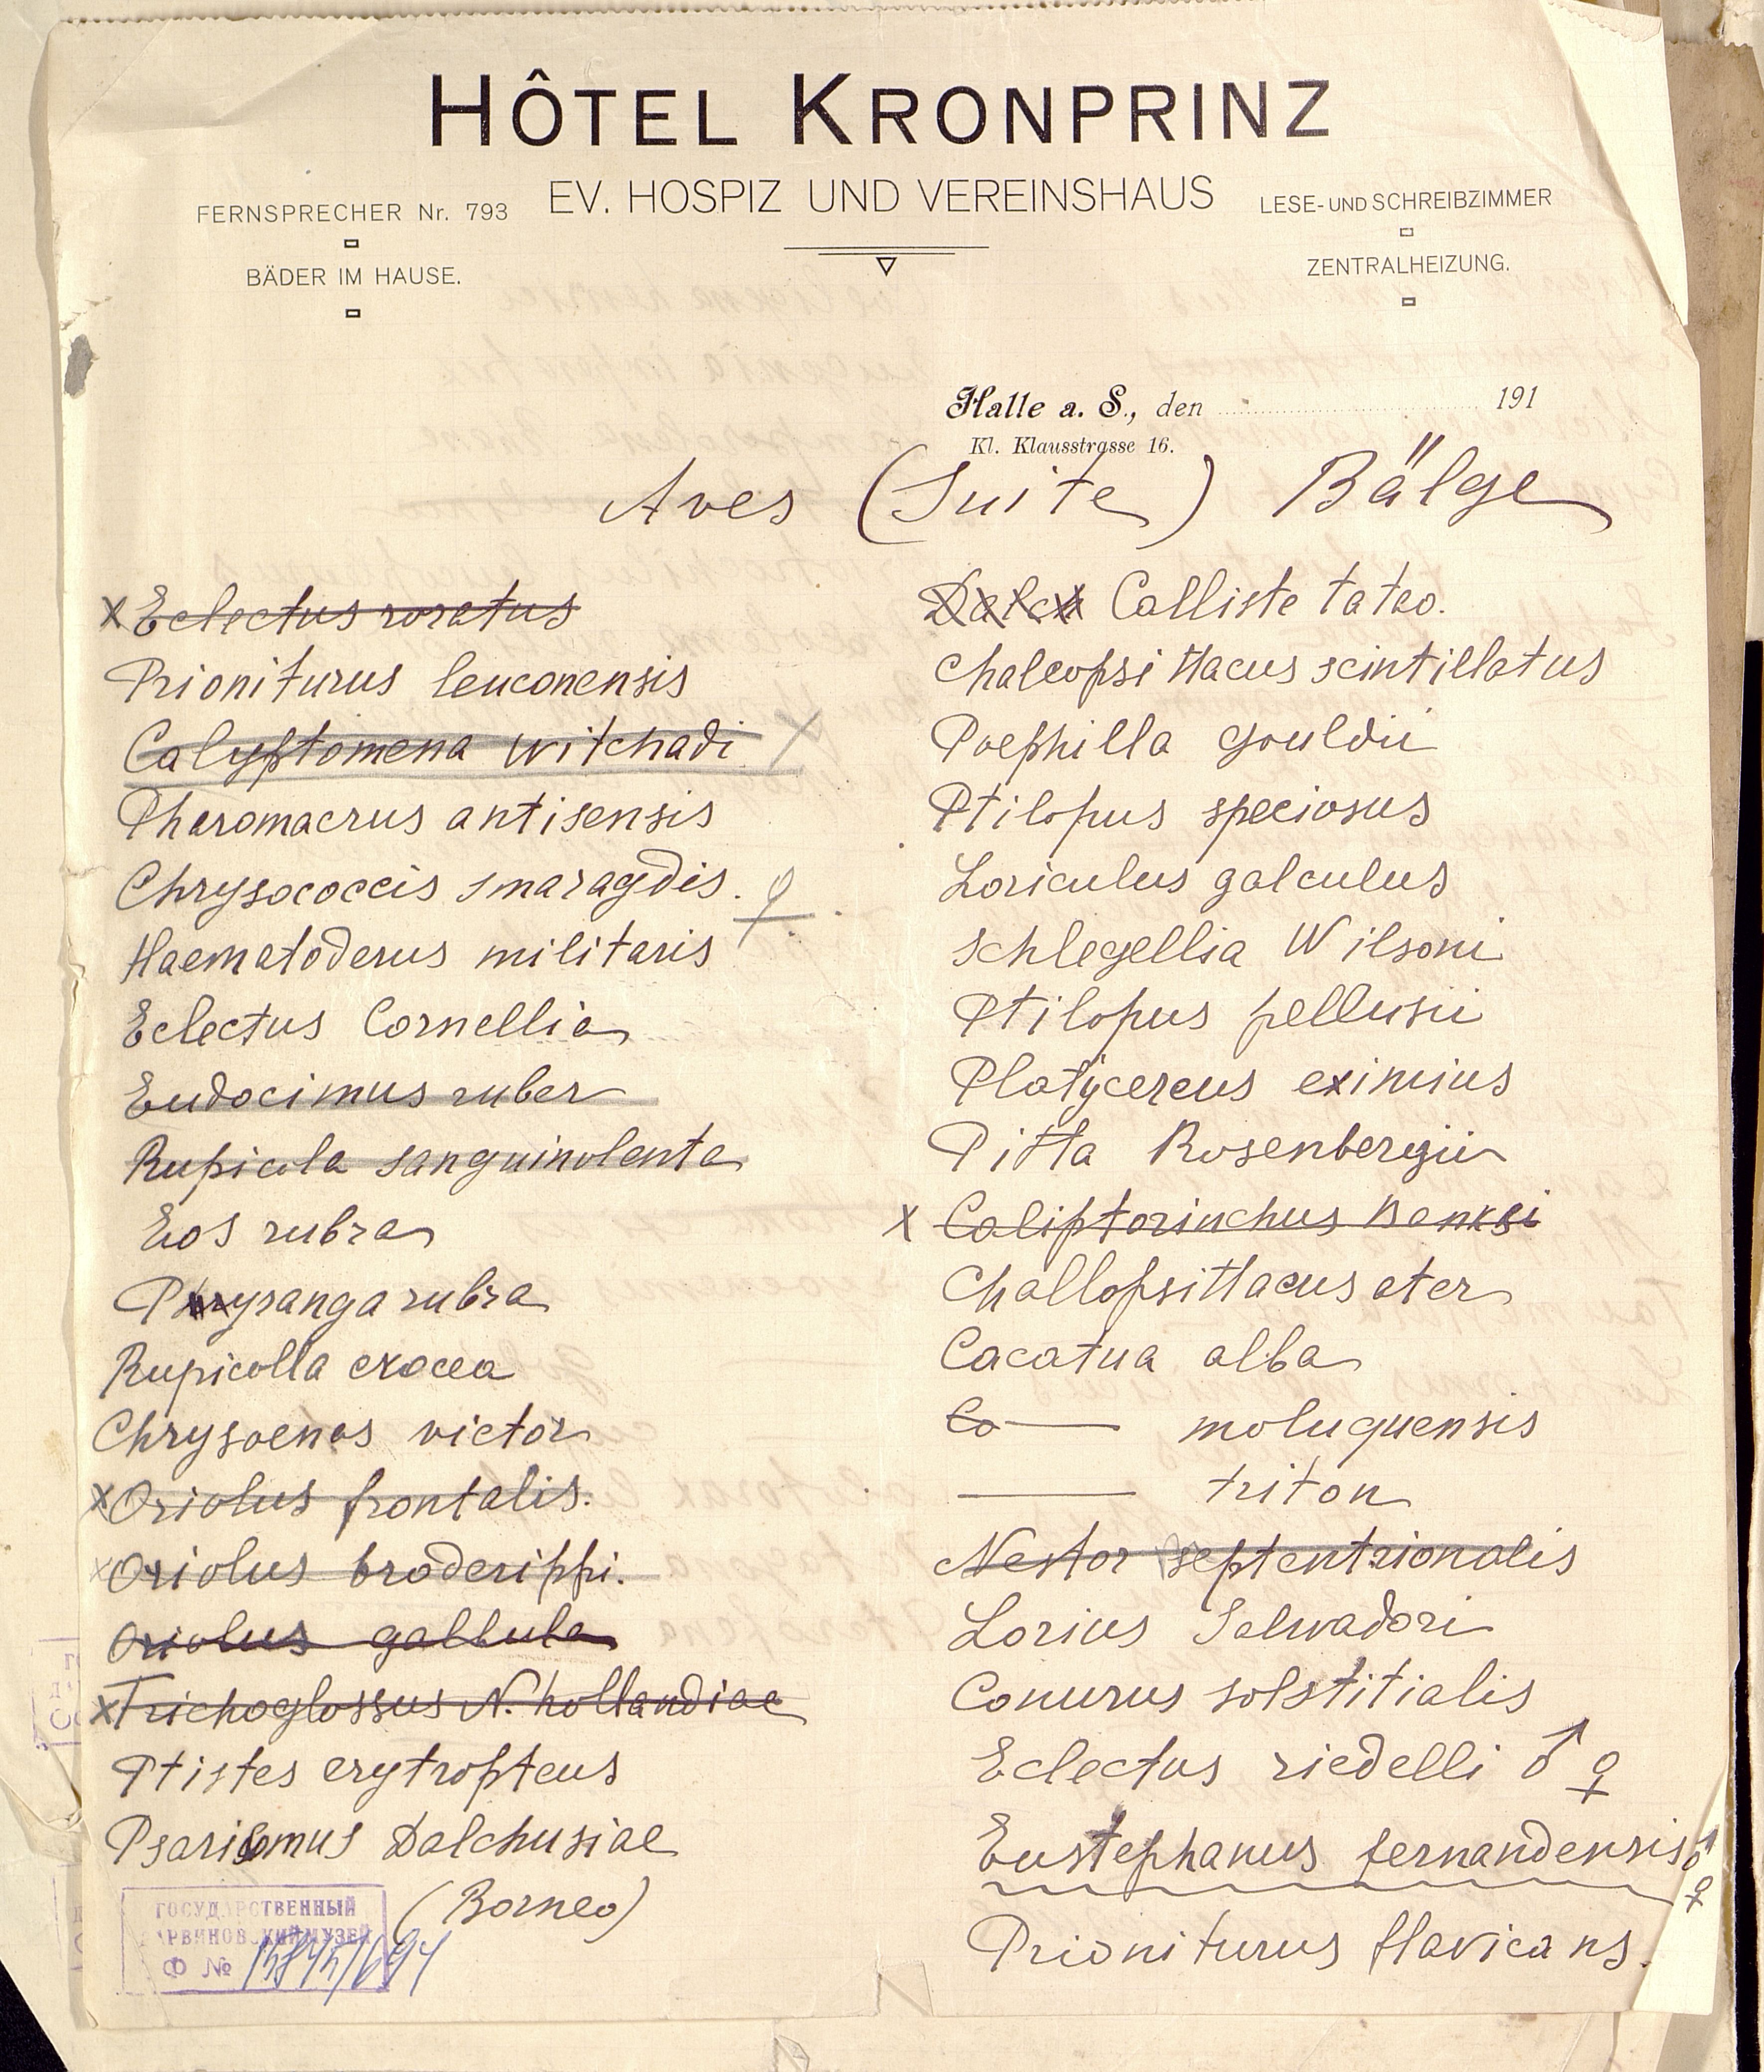 HÔTEL KRONPRINZ
EV. HOSPIZ UND VEREINSHAUS
FERNSPRECHER Nr. 793
BÄDER IM HAUSE.
LESE- UND SCHREIBZIMMER
ZENTRALHEIZUNG.
Halle a. S., den 191
Kl. Klausstrasse 16.
Aves (Suite) Bälge
x Eclectus roratus
Prioniturus leuconensis
Calyptomena Witchadi x
Pharomacrus antisensis
Chrysococcis smaragdis. ♀
Haematoderus militaris
Eclectus Cornellia
Eudocimus ruber
Rupicola sanguinolenta
Eos rubra
Pyranga rubra
Rupicolla crocea
Chrysoenas victor
x Oriolus frontalis.
x Oriolus broderippi.
Oriolus galbula
x Trichoglossus N. hollandiae
Ptistes erytropteus
Psarisomus Dalchusiae
(Borneo)
Calliste tatao.
Chalcopsittacus scintillatus
Poephilla gouldii
Ptilopus speciosus
Loriculus galculus
Schlegellia Wilsoni
Ptilopus pellusii
Platycercus eximius
Pitta Rosenbergii
x Caliptorinchus Banksi
Challopsittacus ater
Cacatua alba
Ca— moluquensis
— triton
Nestor septentrionalis
Lorius Salwadori
Conurus solstitialis
Eclectus riedelli ♂ ♀
Eustephanus fernandensis ♂ ♀
Prioniturus flavicans.
ГОСУДАРСТВЕННЫЙ
ДАРВИНОВСКИЙ МУЗЕЙ
Ф №